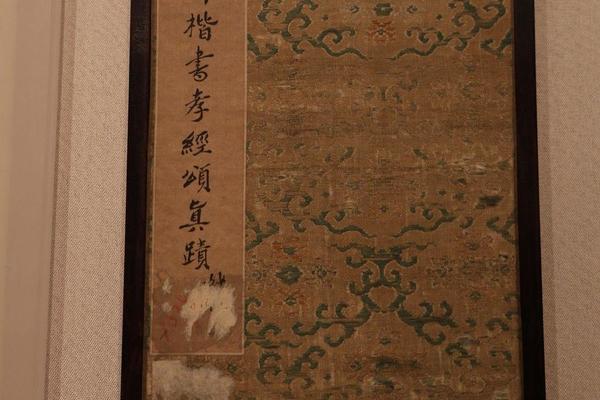 楷書孝經頌真蹟